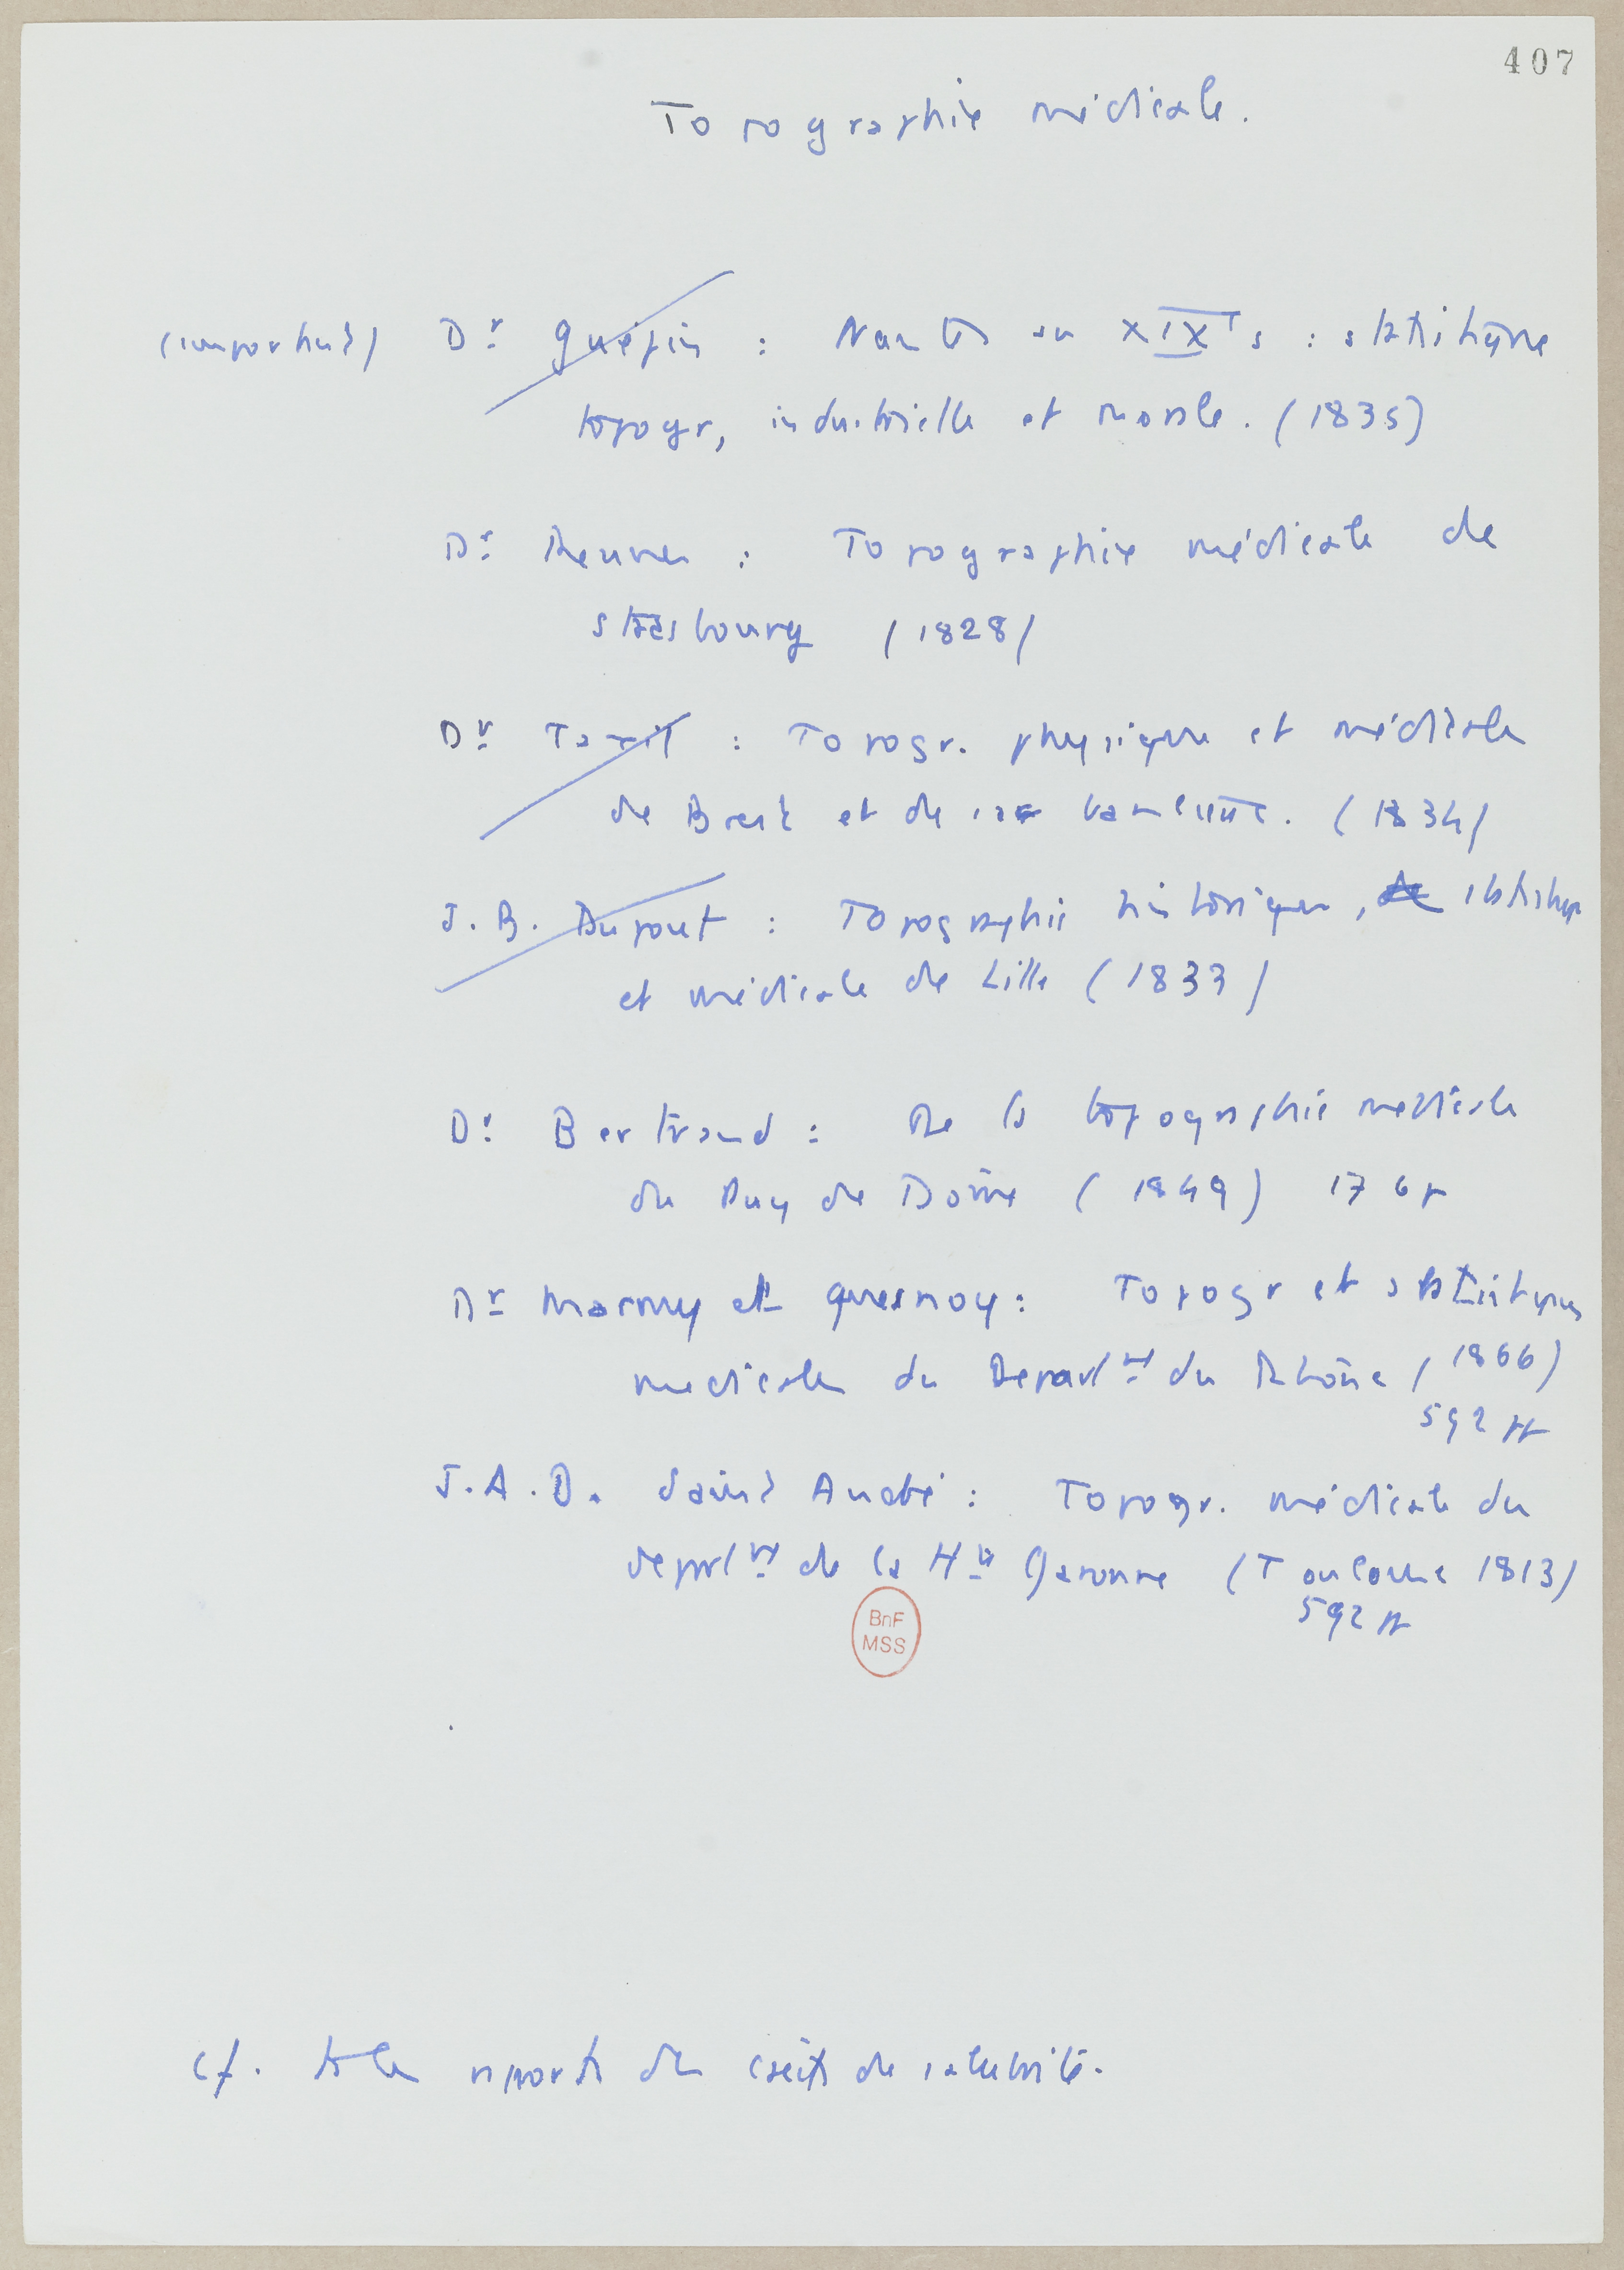 407
Topographie médicale.
(important) Dr Guépin : Nantes au XIXe s : statistique
topogr, industrielle et morale. (1835)
Dr : Topographie médicale de
Strasbourg (1828)
Dr Taxil : Topogr. physique et médicale
de Brest et de sa banlieue. (1834)
J. B. Dupont : Topographie historique, statistique
et médicale de Lille (1833)
Dr Bertrand : De la topographie médicale
du Puy de Dôme (1849) 176 p
Dr Marmy et Quesnoy : Topogr et statistiques
médicales du Départnt du Rhône (1866)
592 pp
J.A.D. Saint André : Topogr. médicale du
départnt de la Hte Garonne (Toulouse 1813)
592 pp
BnF
MSS
cf. les rapports des de salubrité.